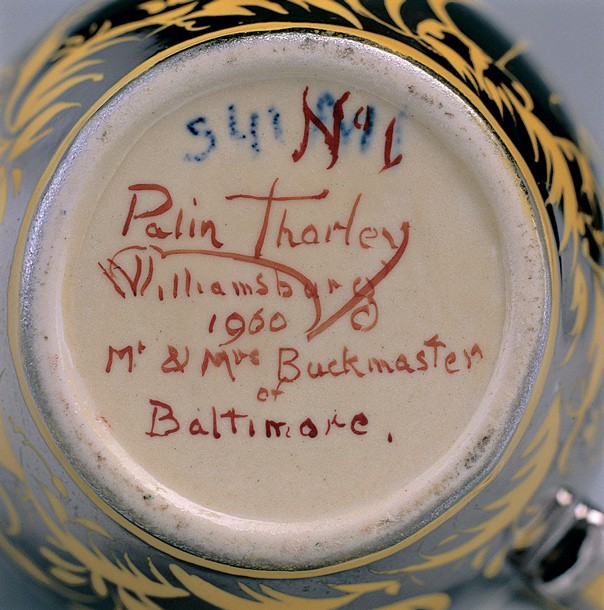 541 No 1
Palin Thorley
Williamsburg
1960 ©
Mr & Mrs Buckmaster
of
Baltimore.